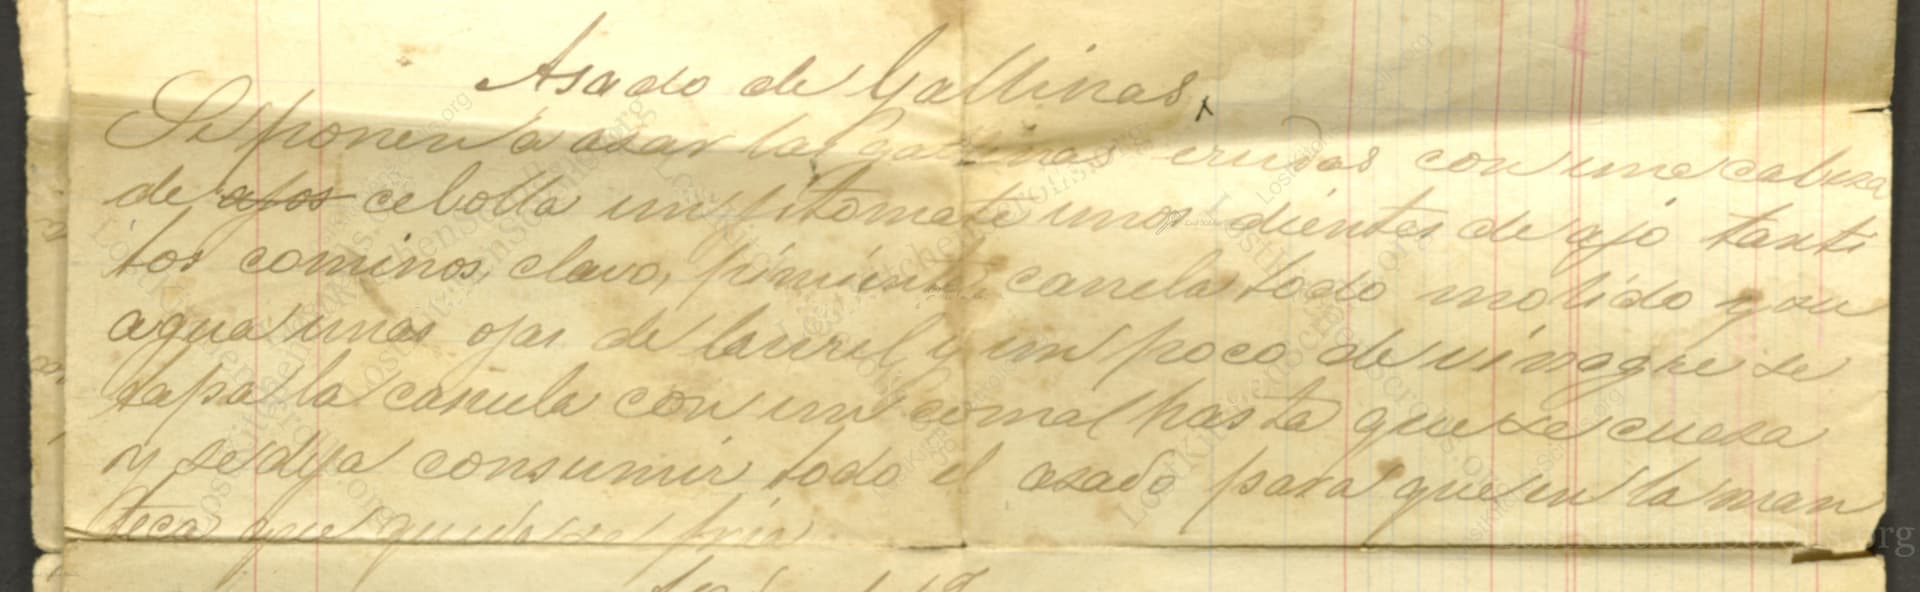 Asado de Gallinas
Se ponen a asar las Gallinas crudas con una cabeza
de ajos cebolla un jitomate unos dientes de ajo tanti
tos cominos, clavo, pimienta canela todo molido y su
agua unas ojas de laurel y un poco de vinagre se
tapa la casuela con un comal hasta que se cuesa
y se deja consumir todo el asado para que en la man
teca que quede se fria